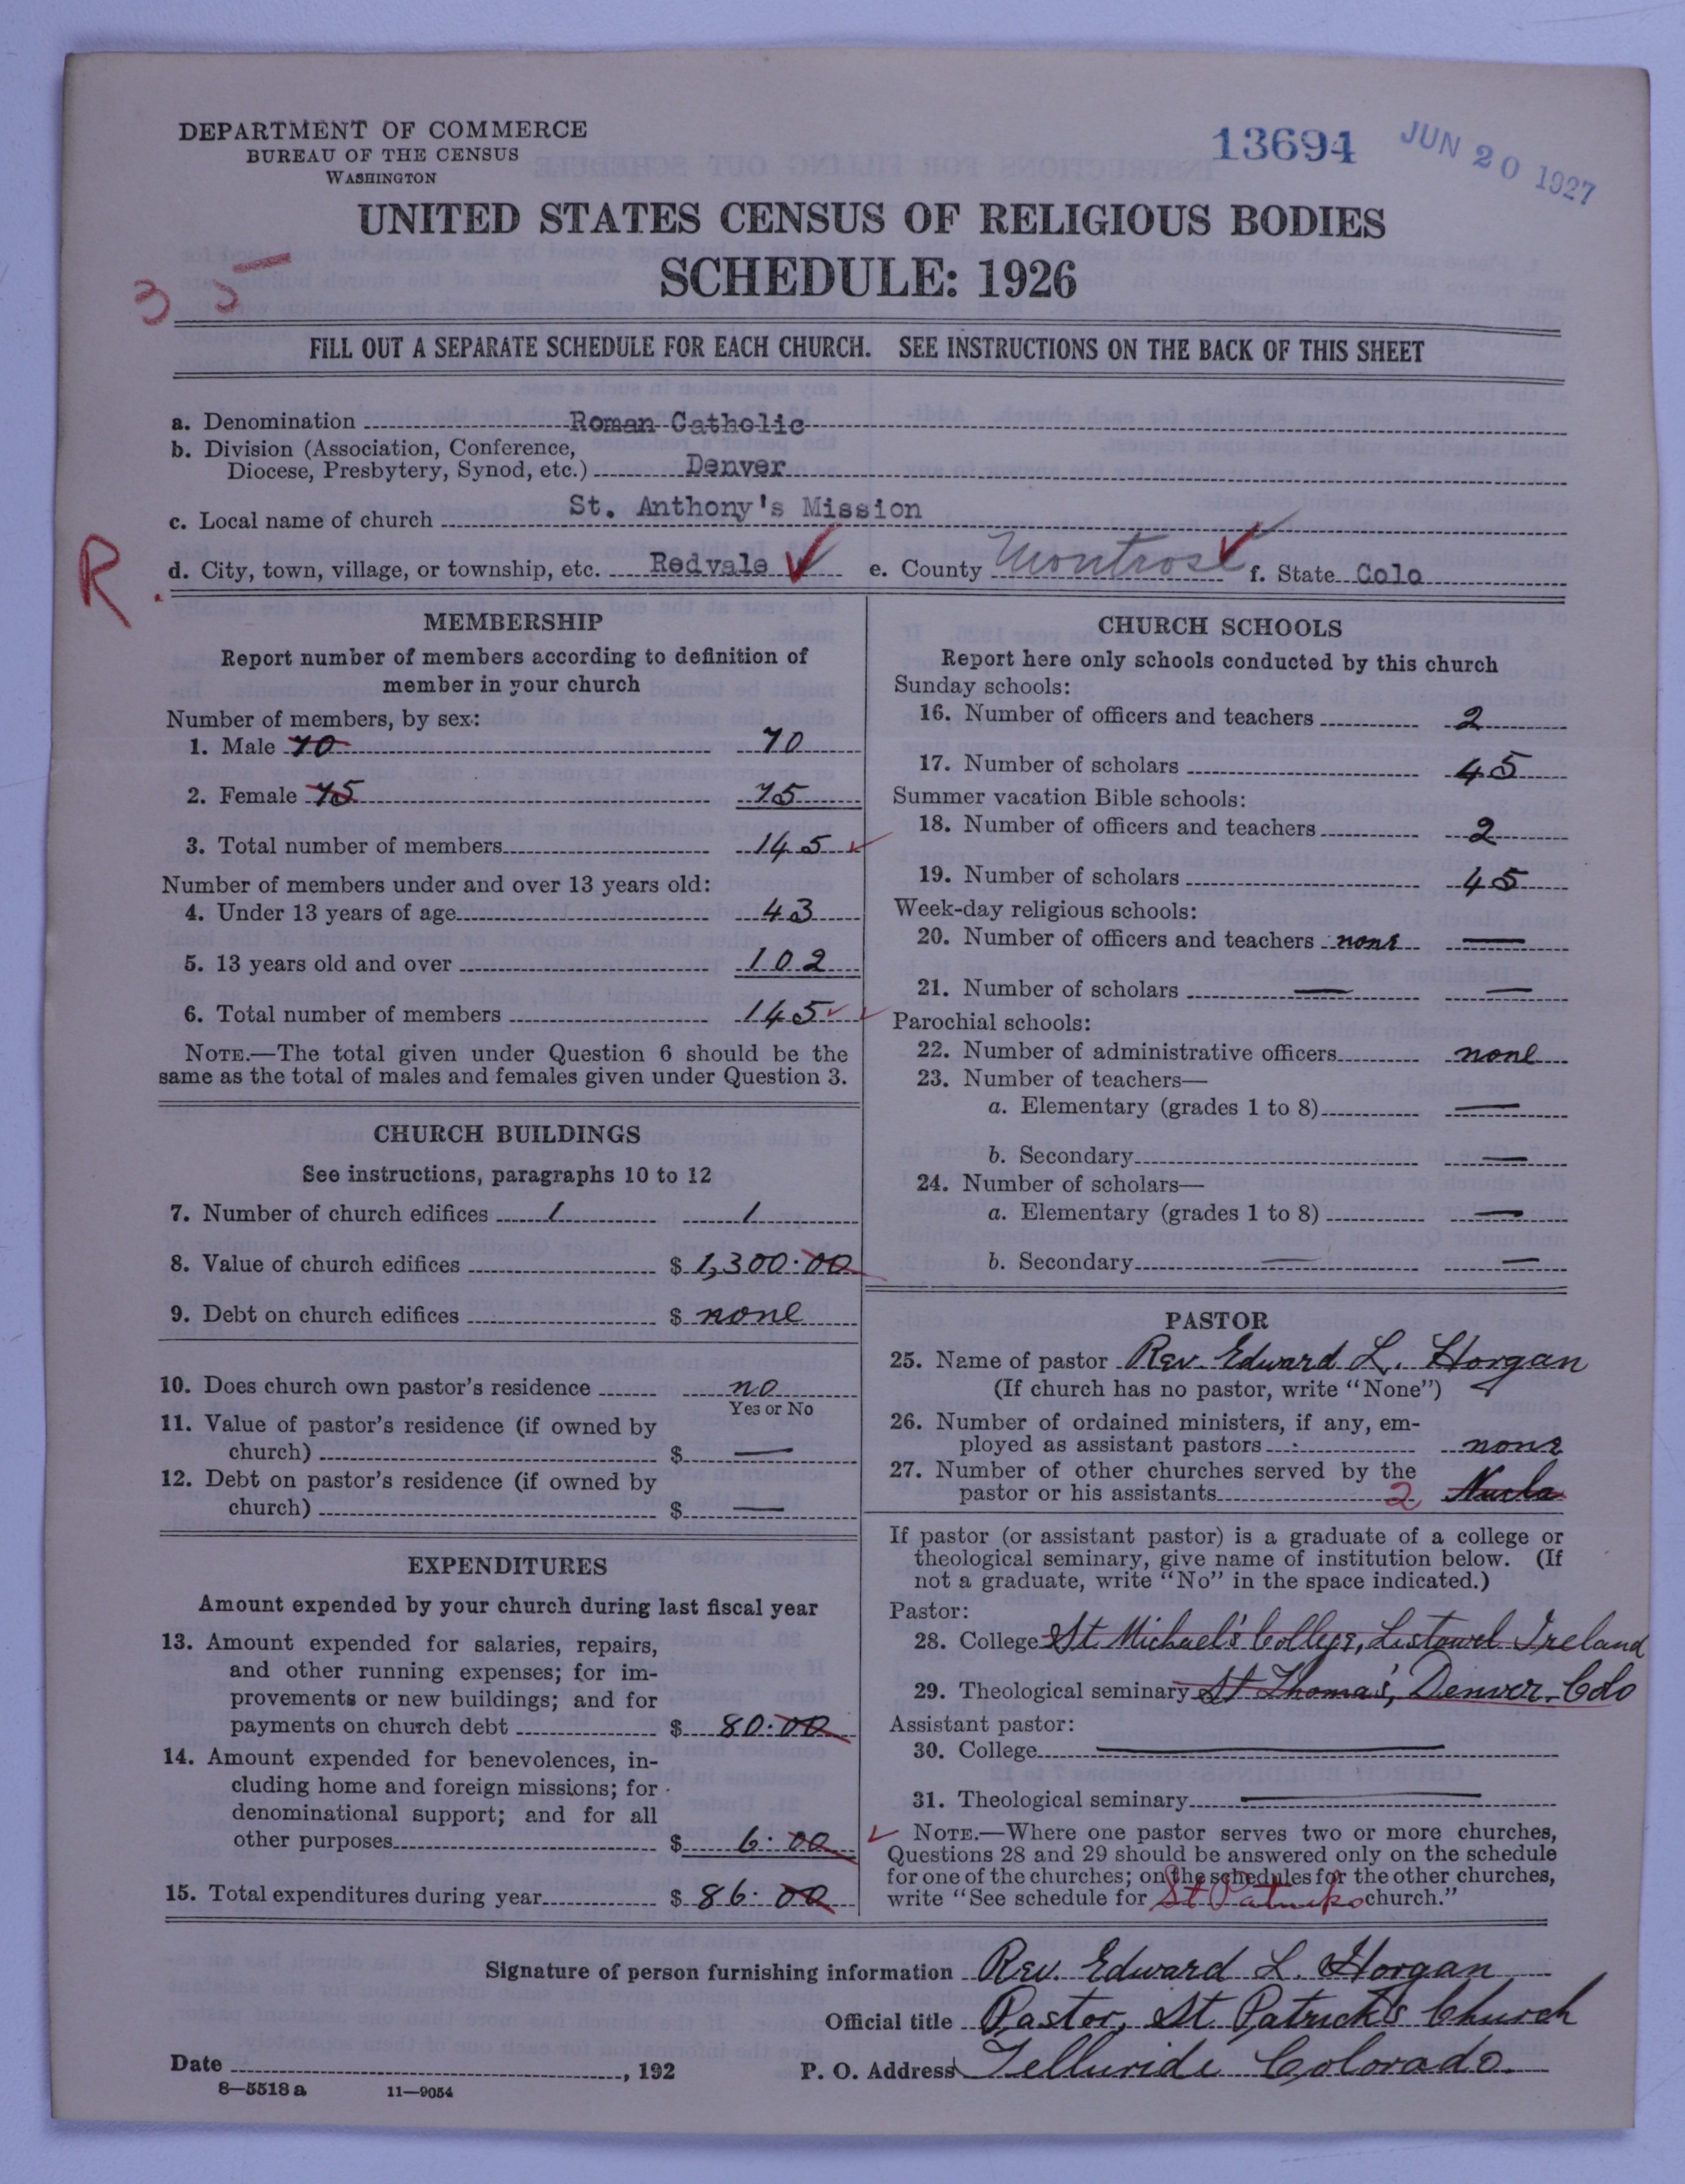 DEPARTMENT OF COMMERCE
BUREAU OF THE CENSUS
WASHINGTON
13694
JUN 20 1927
UNITED STATES CENSUS OF RELIGIOUS BODIES
SCHEDULE: 1926
3 5
FILL OUT A SEPARATE SCHEDULE FOR EACH CHURCH. SEE INSTRUCTIONS ON THE BACK OF THIS SHEET
a. Denomination Roman Catholic
b. Division (Association, Conference,
Diocese, Presbytery, Synod, etc.) Denver
c. Local name of church St. Anthony's Mission
R.
d. City, town, village, or township, etc. Redvale e. County Montrose f. State Colo
MEMBERSHIP
Report number of members according to definition of
member in your church
Number of members, by sex:
1. Male 70 70
2. Female 75 75
3. Total number of members 145
Number of members under and over 13 years old:
4. Under 13 years of age 43
5. 13 years old and over 102
6. Total number of members 145
NOTE.—The total given under Question 6 should be the
same as the total of males and females given under Question 3.
CHURCH BUILDINGS
See instructions, paragraphs 10 to 12
7. Number of church edifices 1 1
8. Value of church edifices $ 1,300.00
9. Debt on church edifices $ none
10. Does church own pastor's residence no
Yes or No
11. Value of pastor's residence (if owned by
church) $ —
12. Debt on pastor's residence (if owned by
church) $ —
EXPENDITURES
Amount expended by your church during last fiscal year
13. Amount expended for salaries, repairs,
and other running expenses; for im-
provements or new buildings; and for
payments on church debt $ 80.00
14. Amount expended for benevolences, in-
cluding home and foreign missions; for
denominational support; and for all
other purposes $ 6.00
15. Total expenditures during year $ 86.00
CHURCH SCHOOLS
Report here only schools conducted by this church
Sunday schools:
16. Number of officers and teachers 2
17. Number of scholars 45
Summer vacation Bible schools:
18. Number of officers and teachers 2
19. Number of scholars 45
Week-day religious schools:
20. Number of officers and teachers none —
21. Number of scholars — —
Parochial schools:
22. Number of administrative officers none
23. Number of teachers—
a. Elementary (grades 1 to 8) —
b. Secondary —
24. Number of scholars—
a. Elementary (grades 1 to 8) —
b. Secondary — —
PASTOR
25. Name of pastor Rev. Edward L. Horgan
(If church has no pastor, write "None")
26. Number of ordained ministers, if any, em-
ployed as assistant pastors none
27. Number of other churches served by the
pastor or his assistants 2 Nucla
If pastor (or assistant pastor) is a graduate of a college or
theological seminary, give name of institution below. (If
not a graduate, write "No" in the space indicated.)
Pastor:
28. College St. Michael's College, Listowel Ireland
29. Theological seminary St Thomas', Denver. Colo
Assistant pastor:
30. College —
31. Theological seminary —
NOTE.—Where one pastor serves two or more churches,
Questions 28 and 29 should be answered only on the schedule
for one of the churches; on the schedules for the other churches,
write "See schedule for St Patricks church."
Signature of person furnishing information Rev. Edward L. Horgan
Official title Pastor, St. Patrick's Church
Date , 192 P. O. Address Telluride Colorado.
8—5518 a 11—9054